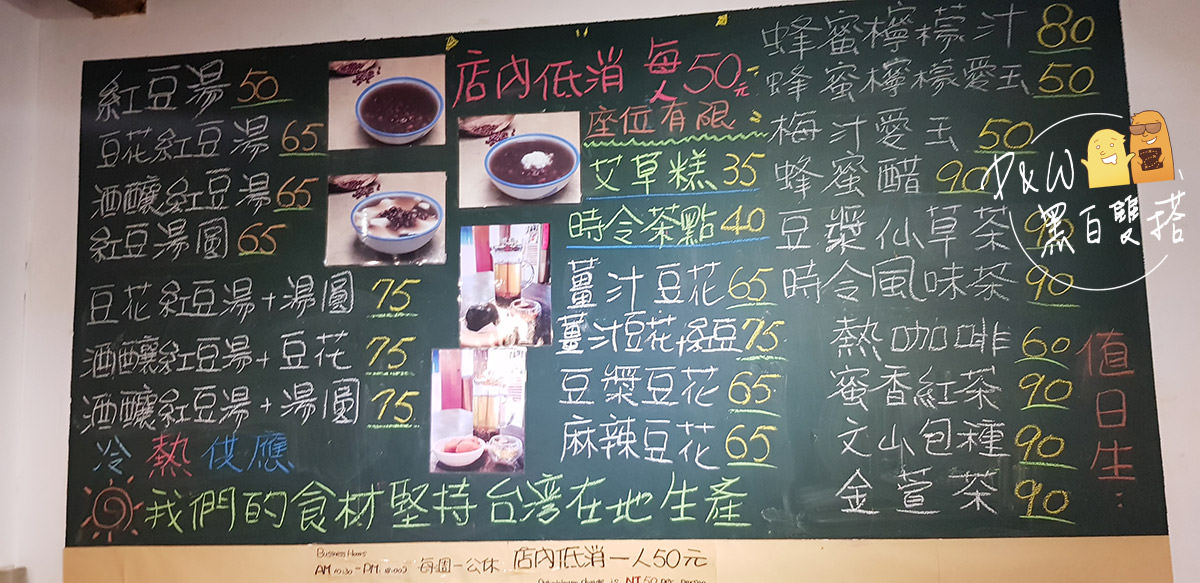 紅豆湯 50
豆花紅豆湯 65
酒釀紅豆湯 65
紅豆湯圓 65
豆花紅豆湯+湯圓 75
酒釀紅豆湯+豆花 75
酒釀紅豆湯+湯圓 75
冷熱供應
店內低消 每人50元
座位有限
艾草糕 35
時令茶點 40
薑汁豆花 65
薑汁豆花+紅豆 75
豆漿豆花 65
麻辣豆花 65
蜂蜜檸檬汁 80
蜂蜜檸檬愛玉 50
梅汁愛玉 50
蜂蜜醋 90
豆漿仙草茶 90
時令風味茶 90
熱咖啡 60
蜜香紅茶 90
文山包種 90
金萱茶 90
值日生:
我們的食材堅持台灣在地生產
P&W
黑白雙搭
Business Hours
每週一公休 店內低消一人50元
NT 50 per person